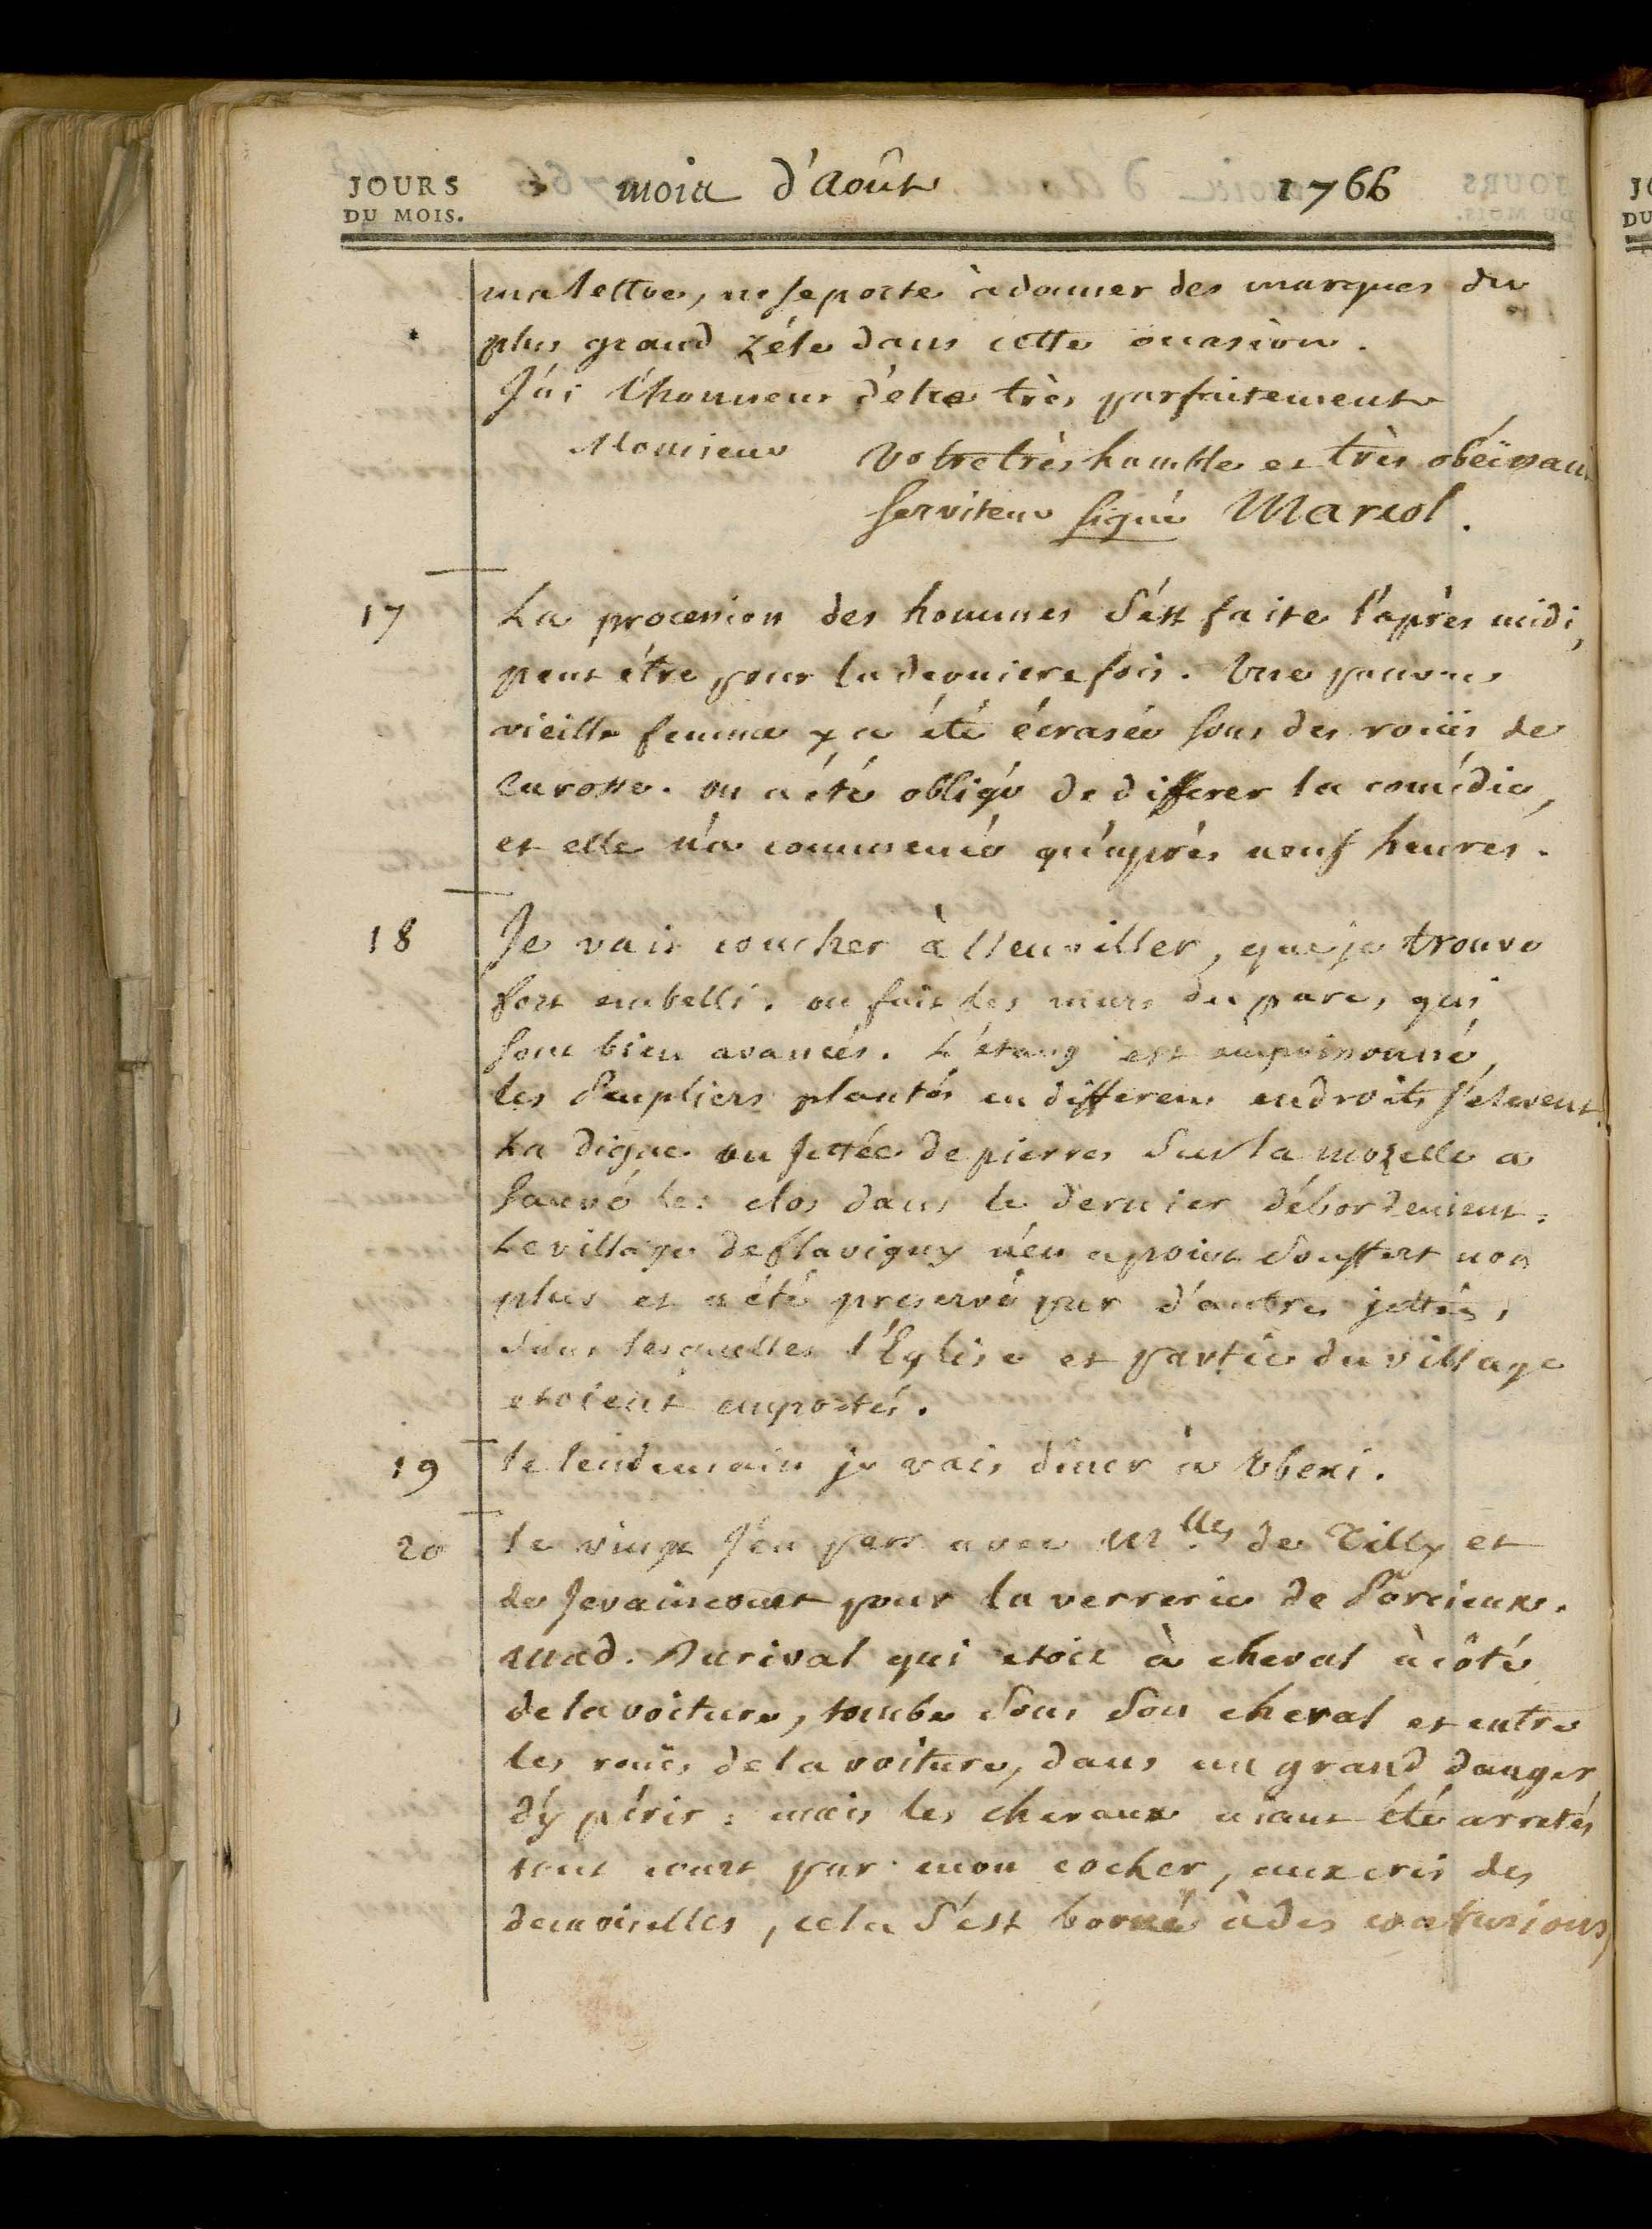 JOURS
DU MOIS.
mois d'Août 1766
ma lettre, ne se porte à donner des marques du
plus grand zéle dans cette occasion.
J'ai l'honneur d'etre très parfaitement
Monsieur Votre très humble et très obéissant
Serviteur signé Marcol.
17 La procession des hommes s'est faite l'après midi,
peut être pour la derniere fois. Une pauvre
vieille femme y a été écrasée sous des roües de
Carosse. on a été obligé de differer la comédie,
et elle n'a commencé qu'après neuf heures.
18 Je vais coucher à Neuviller, que je trouve
fort embelli. on fait les murs du parc, qui
sont bien avancés. L'étang est empoissonné,
les Peupliers plantés en differens endroits s'elevent.
La digue ou jettée de pierres sur la mozelle a
sauvé le clos dans le dernier débordement.
Le village de flavigny n'en a point souffert non
plus et a été preservé par d'autres jettées,
sans lesquelles l'Eglise et partie du village
etoient emportés.
19 le lendemain je vais diner à Ubexi.
20 le vingt j'en pars avec Mlles de Tilly et
de Jevaincourt pour la verrerie de Porcieux.
mad. Durival qui etoit à cheval à côté
de la voiture, tombe sous son cheval et entre
les roües de la voiture, dans un grand danger
d'y périr: mais les chevaux aiant été arretés
tout court par mon cocher, aux cris des
demoiselles, cela s'est borné à des contusions,